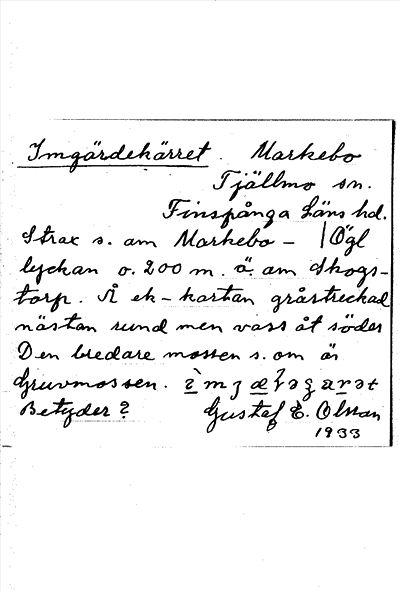 Imgärdekärret. Markebo
Tjällmo sn.
Finspånga Läns hd.
Strax s. om Markebo – | Ögl
lyckan o. 200 m. ö om Skogs-
torp. Å ek-kartan gråstreckad
nästan rund men vass åt söder
Den bredare mossen s. om är
Gruvmossen.
Betyder? Gustaf E. Olsson
1933